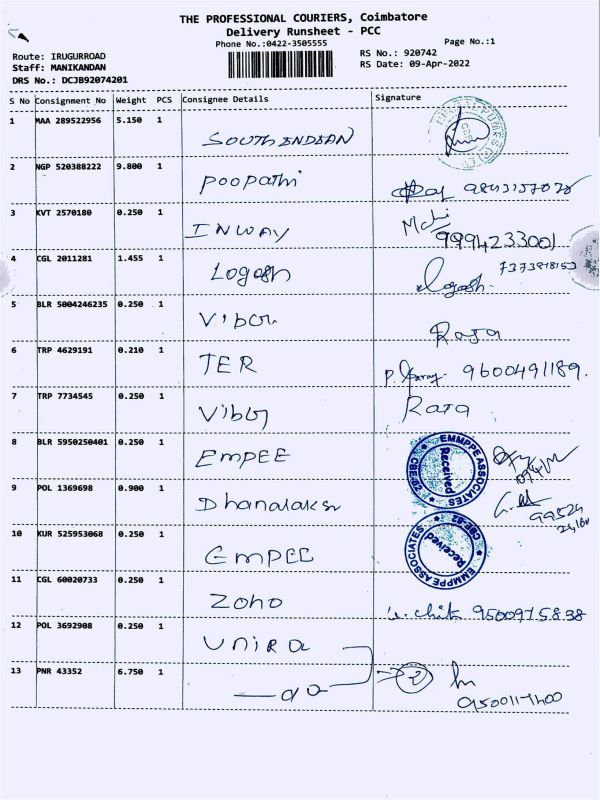 THE PROFESSIONAL COURIERS, Coimbatore
Delivery Runsheet - PCC
Phone No.:0422-3505555
Page No.:1
Route: IRUGURROAD
Staff: MANIKANDAN
DRS No.: DCJB92074201
RS No.: 920742
RS Date: 09-Apr-2022
S No Consignment No Weight PCS Consignee Details Signature
1 MAA 289522956 5.150 1 SOUTH INDIAN
2 NGP 520388222 9.800 1 Poopathi
3 KVT 2570180 0.250 1 INWAY
9994233001
4 CGL 2011281 1.455 1 Logesh Logesh
5 BLR 5004246235 0.250 1 Raja
6 TRP 4629191 0.210 1 TER 9600491189.
7 TRP 7734545 0.250 1 Raja
8 BLR 5950250401 0.250 1 EMPEE
EMMPPE ASSOCIATES
Received
CBE-62
9 POL 1369698 0.900 1
10 KUR 525953068 0.250 1 EMPEE
EMMPPE ASSOCIATES
Received
CBE-62
11 CGL 60020733 0.250 1 ZOHO 9500975838
12 POL 3692908 0.250 1
13 PNR 43352 6.750 1 2